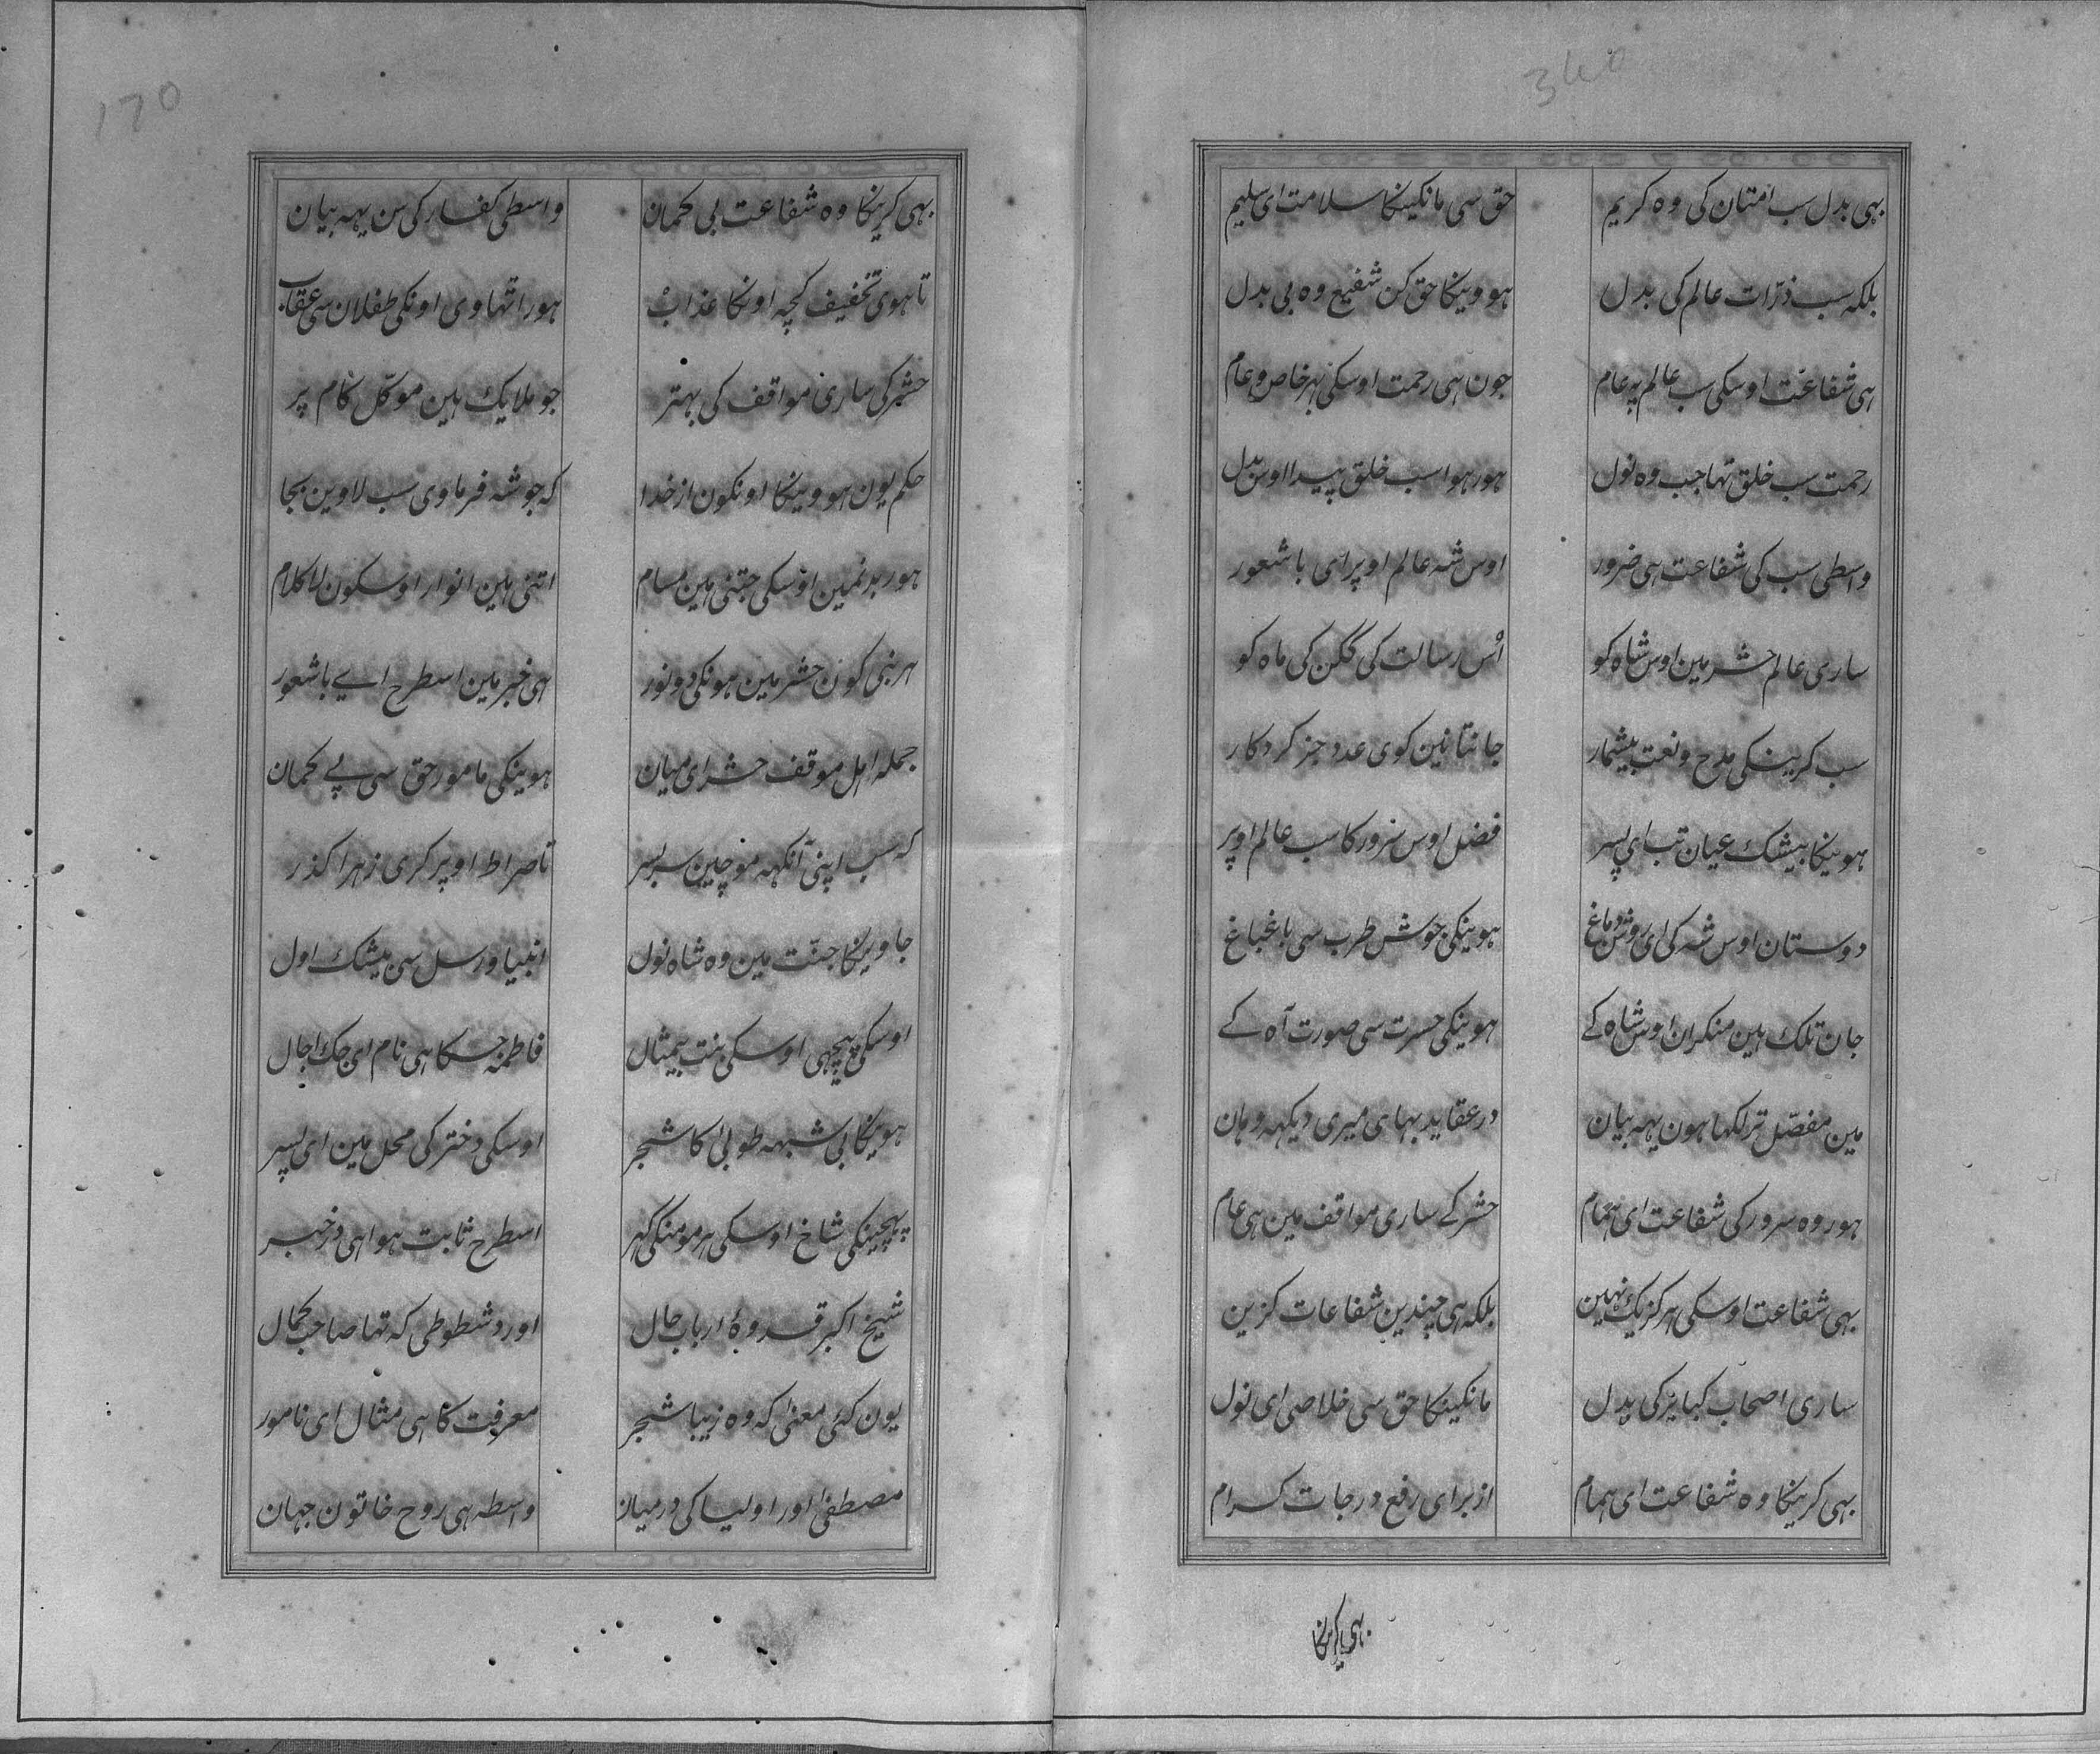 340
بهی بدل سب امتان کی وہ کریم حق سی مانکینکا سلامت ای سلیم
بلکہ سب ذرّات عالم کی بدل ہووینکا حق کن شفیع وہ بی بدل
ہی شفاعت اوسکی سب عالم پہ عام جون ہی رحمت اوسکی بہر خاص و عام
رحمت سب خلق تہا جب وہ نول ہور ہوا سب خلق پیدا اوس بدل
واسطی سب کی شفاعت ہی ضرور اوس شہ عالم اوپر ای باشعور
ساری عالم حشر مین اوس شاہ کو اُس رسالت کی گگن کی ماہ کو
سب کرینکی مدح و نعت بیشمار جانتا نین کوی عدد جز کردکار
ہوینکا بیشک عیان تب ای پسر فضل اوس سرور کا سب عالم اوپر
دوستان اوس شہ کی ای روشن دماغ ہوینکی خوش طرب سی باغباغ
جان تلک ہین منکران اوس شاہ کے ہوینکی حسرت سی صورت آہ کے
مین مفصّل تر لکہا ہون یہہ بیان در عقاید بہای میری دیکہہ وہان
ہور وہ سرور کی شفاعت ای تمام حشر کے ساری مواقف مین ہی عام
بهی شفاعت اوسکی ہرکز یک نہین بلکہ ہی چندین شفاعات کزین
ساری اصحاب کبایر کی بدل مانکینکا حق سی خلاصی ای نول
بهی کرینکا وہ شفاعت ای ہمام از برای رفع درجات کرام
بهی کرینکا
170
بهی کرینکا وہ شفاعت بی کمان واسطی کفار کی سن یہہ بیان
تا ہوی تخفیف کچہ اونکا عذاب ہور اتہاوی اونکی طفلان سی عقاب
حشر کی ساری مواقف کی بہتر جو ملایک ہین موکّل کام پر
حکم یون ہووینکا اونکون از خدا کہ جو شہ فرماوی سب لاوین بجا
ہور بدنمین اوسکی جتنی ہین مسام اتنی ہین انوار اوسکون لا کلام
ہر نبی کون حشر مین ہونکی دو نور ہی خبر مین اسطرح ایے باشعور
جملہ اہل موقف حشر ای میان ہوینکی مامور حق سی بے کمان
کہ سب اپنی آنکہہ موچین سربسر تا صراط اوپر کری زہرا کذر
جاوینکا جنّت مین وہ شاہ نول انبیا و رسل سی بیشک اول
اوسکی پیچہی اوسکی بنت بیمثال فاطمہ جسکا ہی نام ای جک اجال
ہوینکا بی شبہہ طوبیٰ کا شجر اوسکی دختر کی محل مین ای پسر
پہچینکی شاخ اوسکی ہر مومنکی کہر اسطرح ثابت ہوا ہی در خبر
شیخ اکبر قدوۂ ارباب حال اور دشطوطی کہ تہا صاحب کمال
یون کئی معنیٰ کہ وہ زیبا شجر معرفت کا ہی مثال ای نامور
مصطفیٰ اور اولیا کی درمیان واسطہ ہی روح خاتون جہان